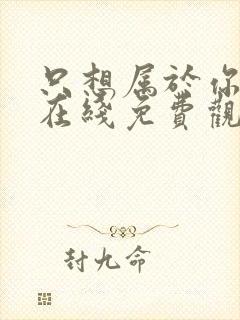 只想属於你
在綫免費觀
封九命